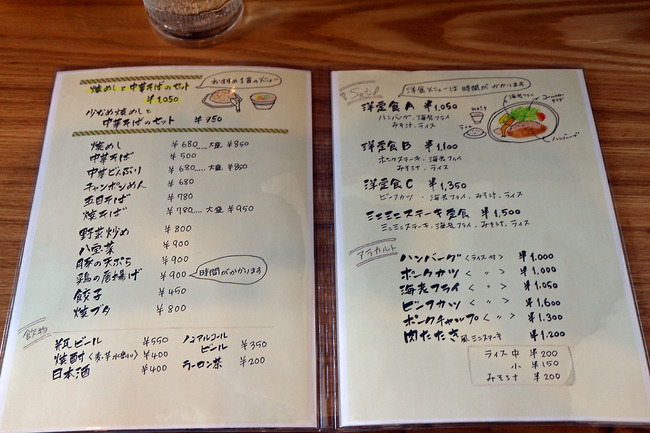 焼めしと中華そばのセット
¥1,050
おすすめ1番のメニュー
少なめ焼めしと
中華そばのセット ¥950
焼めし ¥680....大盛 ¥850
中華そば ¥500
中華どんぶり ¥680....大盛 ¥850
チャンポンめん ¥680
五目そば ¥780
焼そば ¥780....大盛 ¥950
野菜炒め ¥800
八宝菜 ¥900
豚の天ぷら ¥900
鶏の唐揚げ ¥900
時間がかかります
餃子 ¥450
焼ブタ ¥800
飲物
瓶ビール ¥550
焼酎 ¥400
日本酒 ¥400
ノンアルコール
ビール ¥350
ウーロン茶 ¥200
Set
洋食メニューは時間がかかります
洋定食A ¥1,050
ハンバーグ・海老フライ
みそ汁・ライス
みそ汁
ライス
海老フライ
ハンバーグ
洋定食B ¥1,100
ポークステーキ・海老フライ
みそ汁・ライス
洋定食C ¥1,350
ビーフカツ・海老フライ・みそ汁・ライス
ミニミニステーキ定食 ¥1,500
ミニミニステーキ・海老フライ・みそ汁・ライス
アラカルト
ハンバーグ〈ライス付〉 ¥1,000
ポークカツ〈 〃 〉 ¥1,000
海老フライ〈 〃 〉 ¥1,050
ビーフカツ〈 〃 〉 ¥1,600
ポークチャップ〈 〃 〉 ¥1,300
肉たたき風ミニステーキ ¥1,200
ライス 中 ¥200
小 ¥150
みそ汁 ¥200